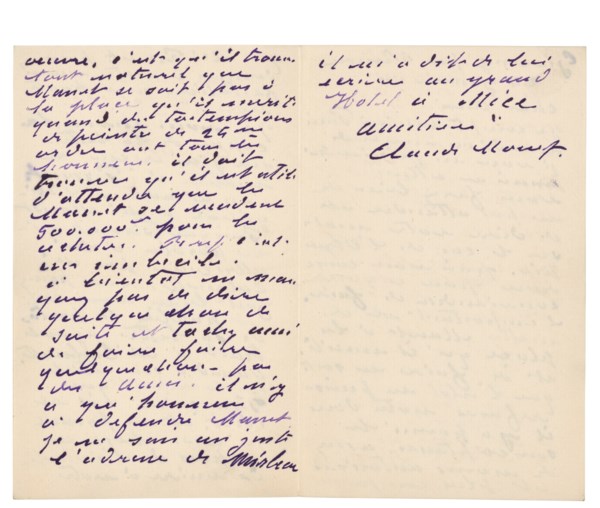 œuvre, c'est qu'il trouve
tout naturel que
Manet ne soit pas à
la place qu'il mérite
quand des tartempions
de peintre de 24me
ordre ont tous les
honneurs. il doit
trouver qu'il est utile
d'attendre que les
Manet se vendent
500.000f pour les
acheter. Bref c'est
un imbécile.
à bientôt ne man
quez pas de dire
quelque chose de
suite et tachez aussi
de faire faire
quelque chose par
des amis. il n'y
a qu'honneur
à defendre Manet
je ne sais au juste
l'adresse de Mirbeau
il m'a dit de lui
ecrire au grand
Hotel à Nice
amitiés
Claude Monet.